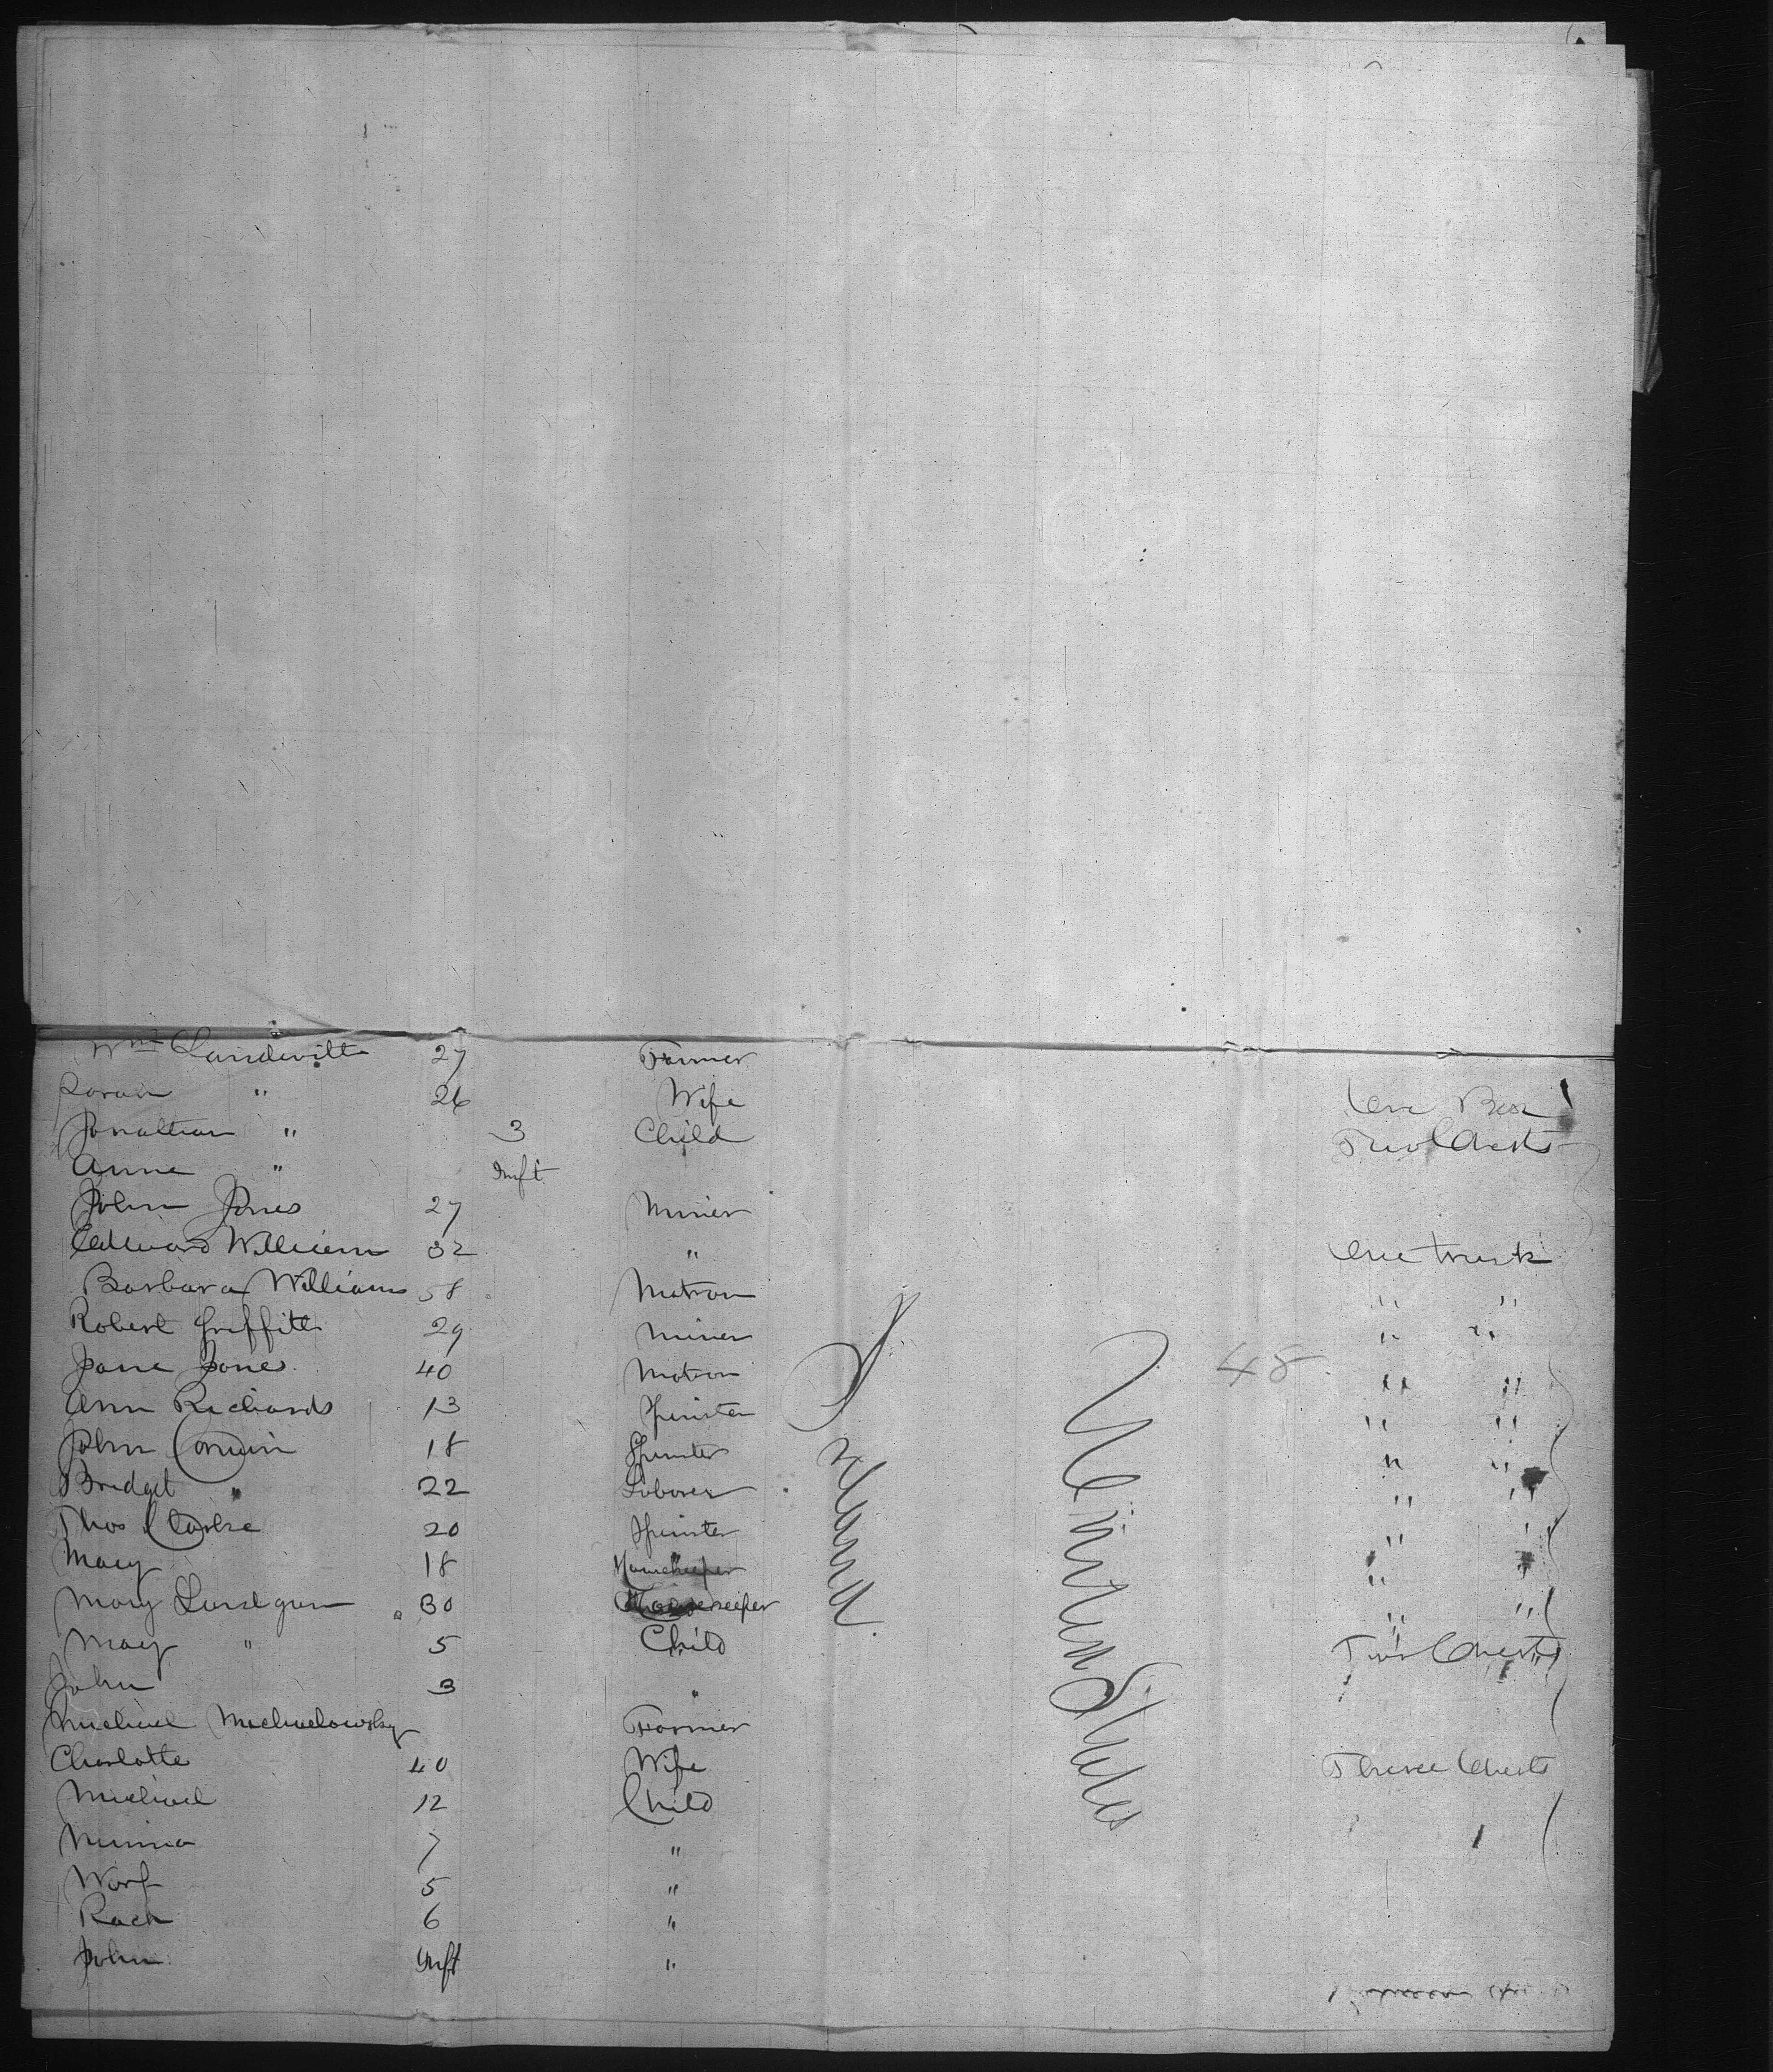 Wm 27 Farmer
" 26 Wife One Box
Jonathan " 3 Child Two Chests
Anne " Inft
John Jones 27 Miner
Edward William 32 " One trunk
Barbara Williams 58 Matron " "
Robert Griffith 29 Miner " "
Jane Jones 40 Matron " "
Ann Richards 13 Spinster " "
John 18 Spinster " "
Bridget " 22 Laborer " "
Thos 20 Spinster " "
Mary 18 Housekeeper " "
Mary 30 Housekeeper " "
Mary " 5 Child Two Chests
John 3 "
Michael Michaelowsky Farmer
Charlotte 40 Wife Three Chests
Michael 12 Child
Minna 7 "
5 "
6 "
John Inft "
Ireland
United States
48